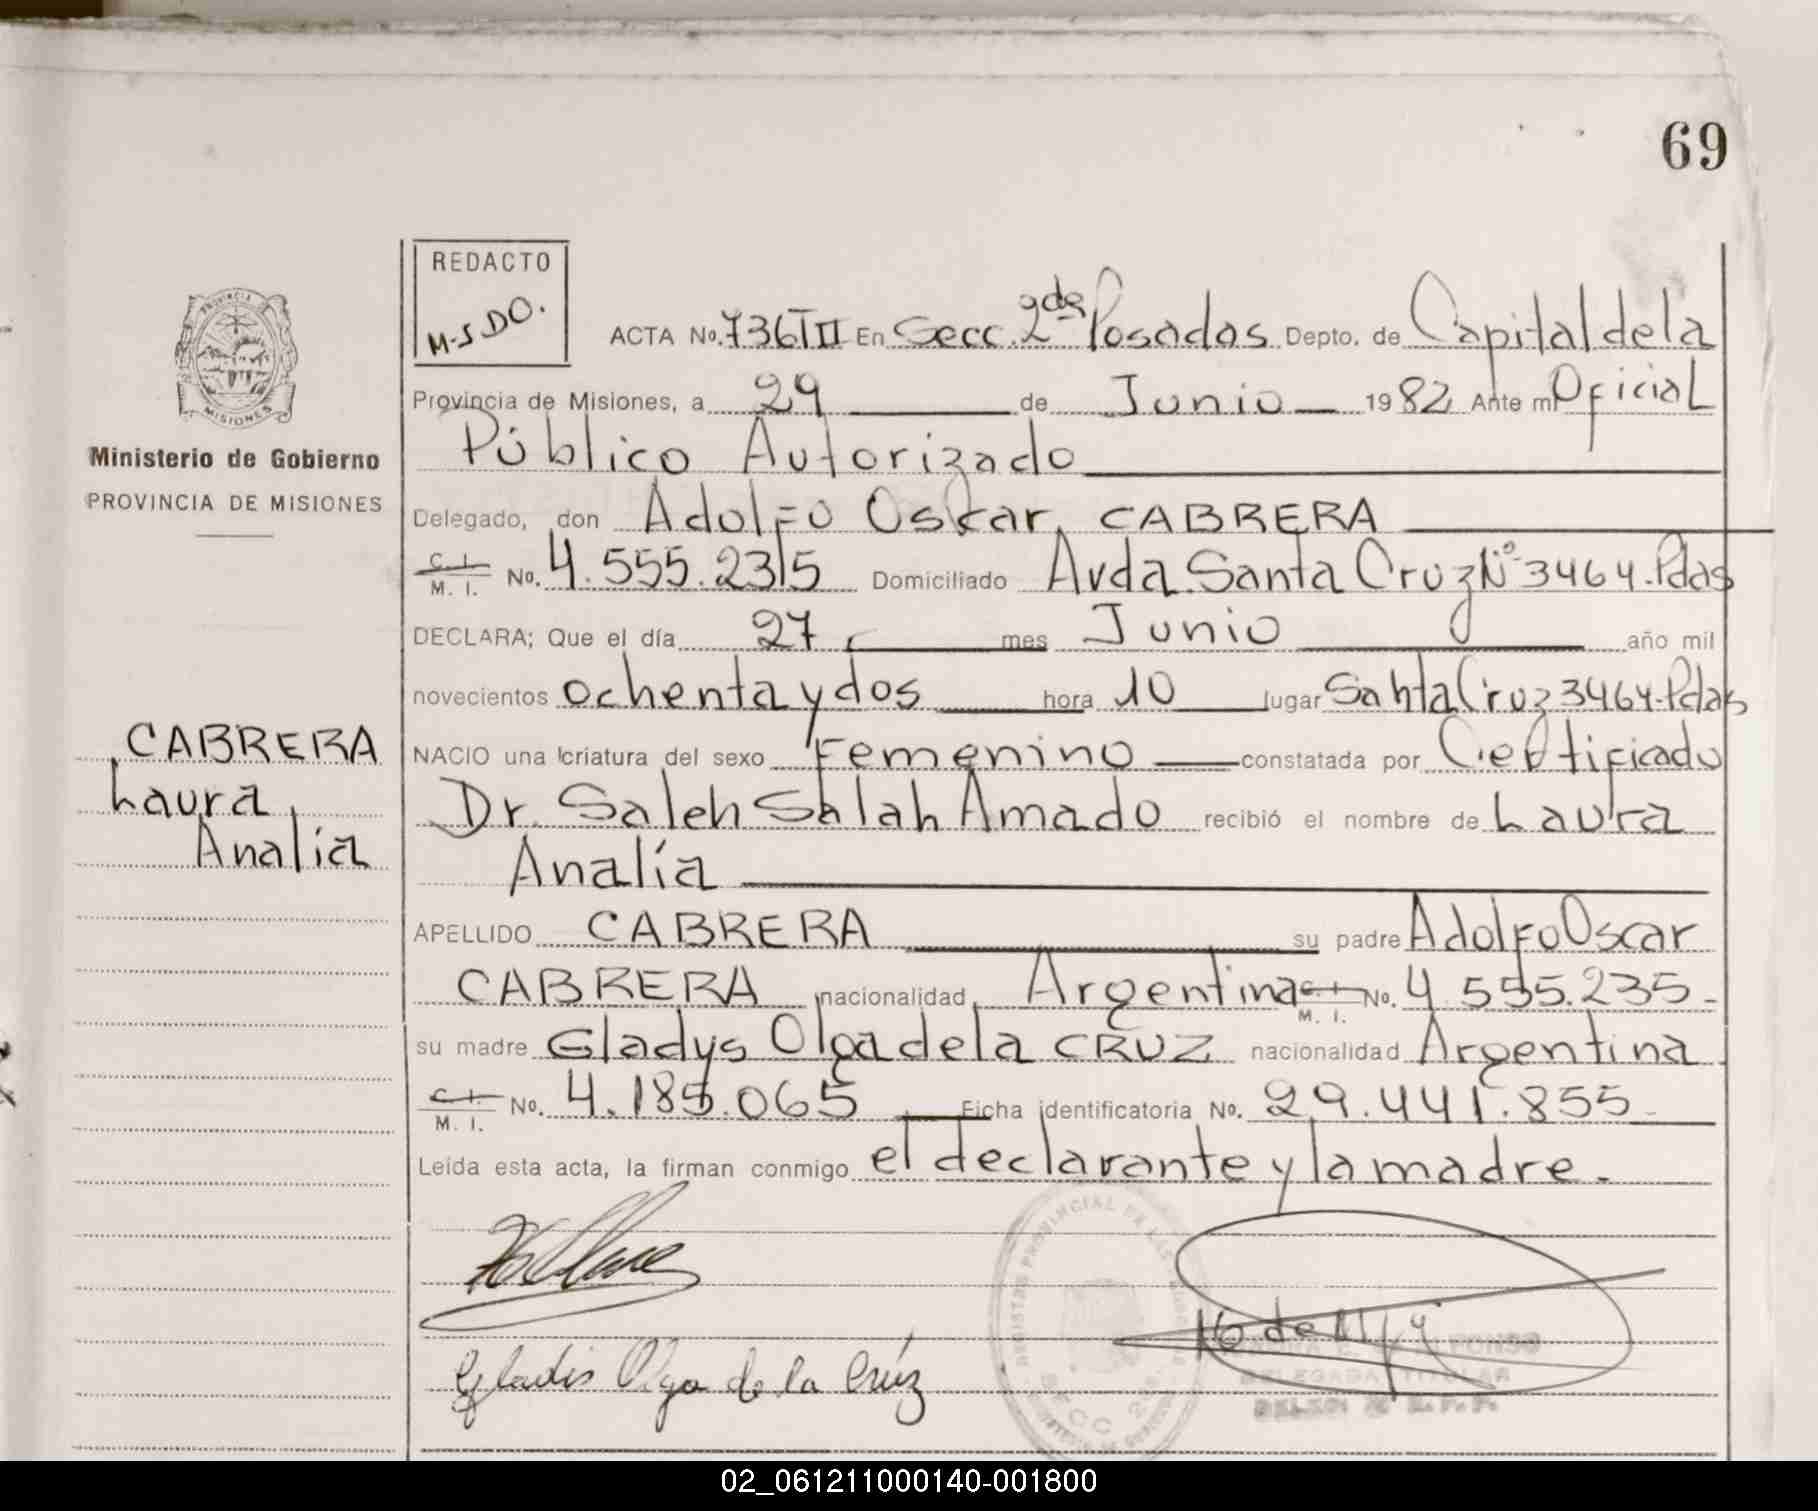 69
REDACTO
M-S DO.
PROVINCIA DE
MISIONES
Ministerio de Gobierno
PROVINCIA DE MISIONES
CABRERA
Laura
Analía
ACTA No. 736 T II En Secc. 2da Posadas Depto. de Capital de la
Provincia de Misiones, a 29 de Junio 1982 Ante mí Oficial
Público Autorizado
Delegado, don Adolfo Oscar CABRERA
C. I. M. I. No. 4.555.235 Domiciliado Avda. Santa Cruz Nº 3464. Pdas
DECLARA; Que el día 27 mes Junio año mil
novecientos ochenta y dos hora 10 lugar Santa Cruz 3464. Pdas
NACIO una criatura del sexo Femenino constatada por Certificado
Dr. Saleh Salah Amado recibió el nombre de Laura
Analía
APELLIDO CABRERA su padre Adolfo Oscar
CABRERA nacionalidad Argentina C. I. M. I. No. 4.555.235-
su madre Gladys Olga de la CRUZ nacionalidad Argentina
C. I. M. I. No. 4.185.065 Ficha identificatoria No. 29.441.855-
Leída esta acta, la firman conmigo el declarante y la madre.
REGISTRO PROVINCIAL DE LAS
SECC 2da
Gladis Olga de la Crúz
ALFONSO
DELEGADA TITULAR
02_061211000140-001800